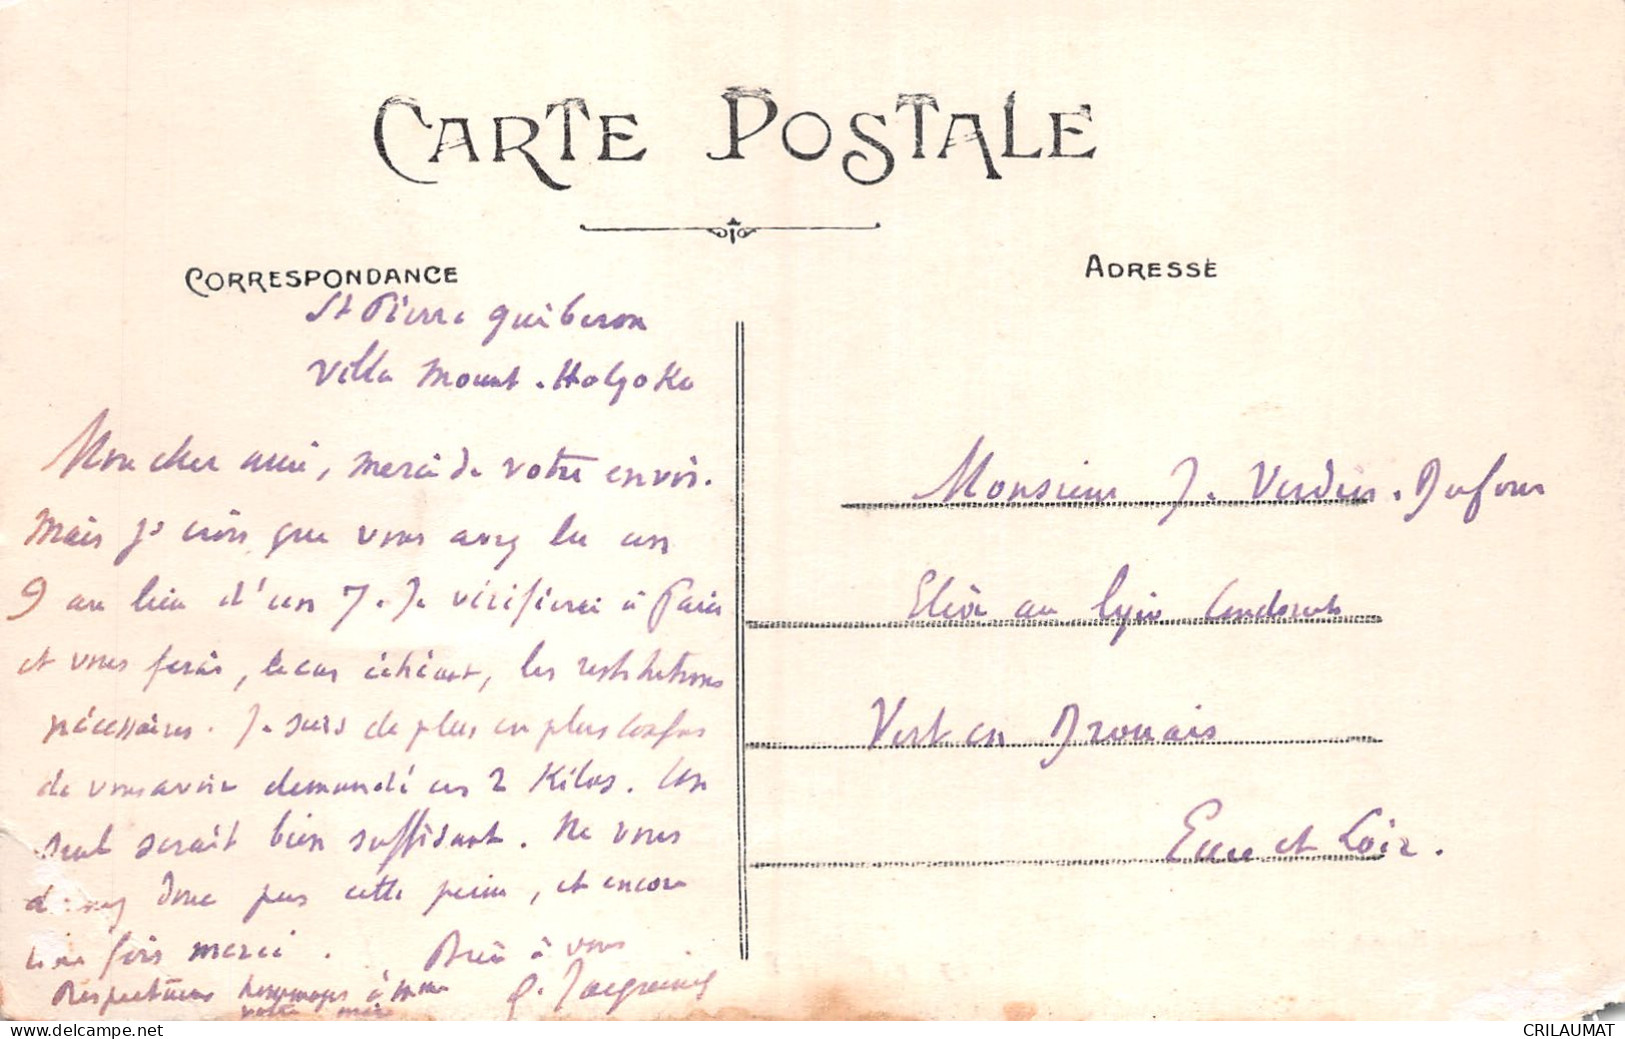 CARTE POSTALE
CORRESPONDANCE
ADRESSE
St Pierre Quiberon
Villa Mount-Holyoke
Mon cher ami, merci de votre envoi.
Mais je crois que vous avez lu un
9 au lieu d'un 7. Je vérifierai à Paris
et vous ferai, le cas échéant, les restitutions
nécessaires. Je suis de plus en plus confus
de vous avoir demandé ces 2 Kilos. Un
seul serait bien suffisant. Ne vous
donc pas cette peine, et encore
une fois merci.
Bien à vous
Respectueux hommages à Mme
votre mère
Monsieur J. Verdier-Dufour
Elève au lycée Condorcet
Vert en Drouais
Eure et Loir.
CRILAUMAT